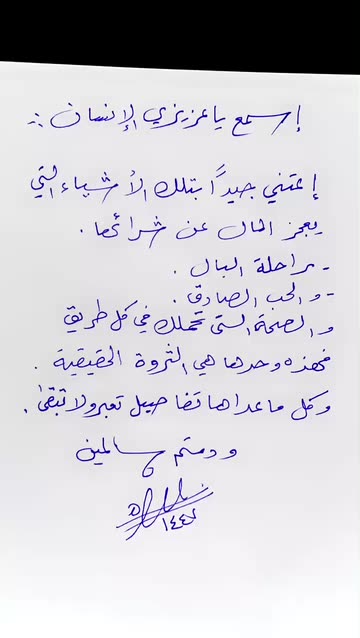 إسمع يا عزيزي الإنسان :
إعتني جيداً بتلك الأشياء التي
يعجز المال عن شرائها .
- براحة البال .
- والحب الصادق .
والصحة التي تحملك في كل طريق
فهذه وحدها هي الثروة الحقيقية .
وكل ما عداها تفاصيل تعبر ولا تبقى .
ودمتم سالمين
١٤٤٧